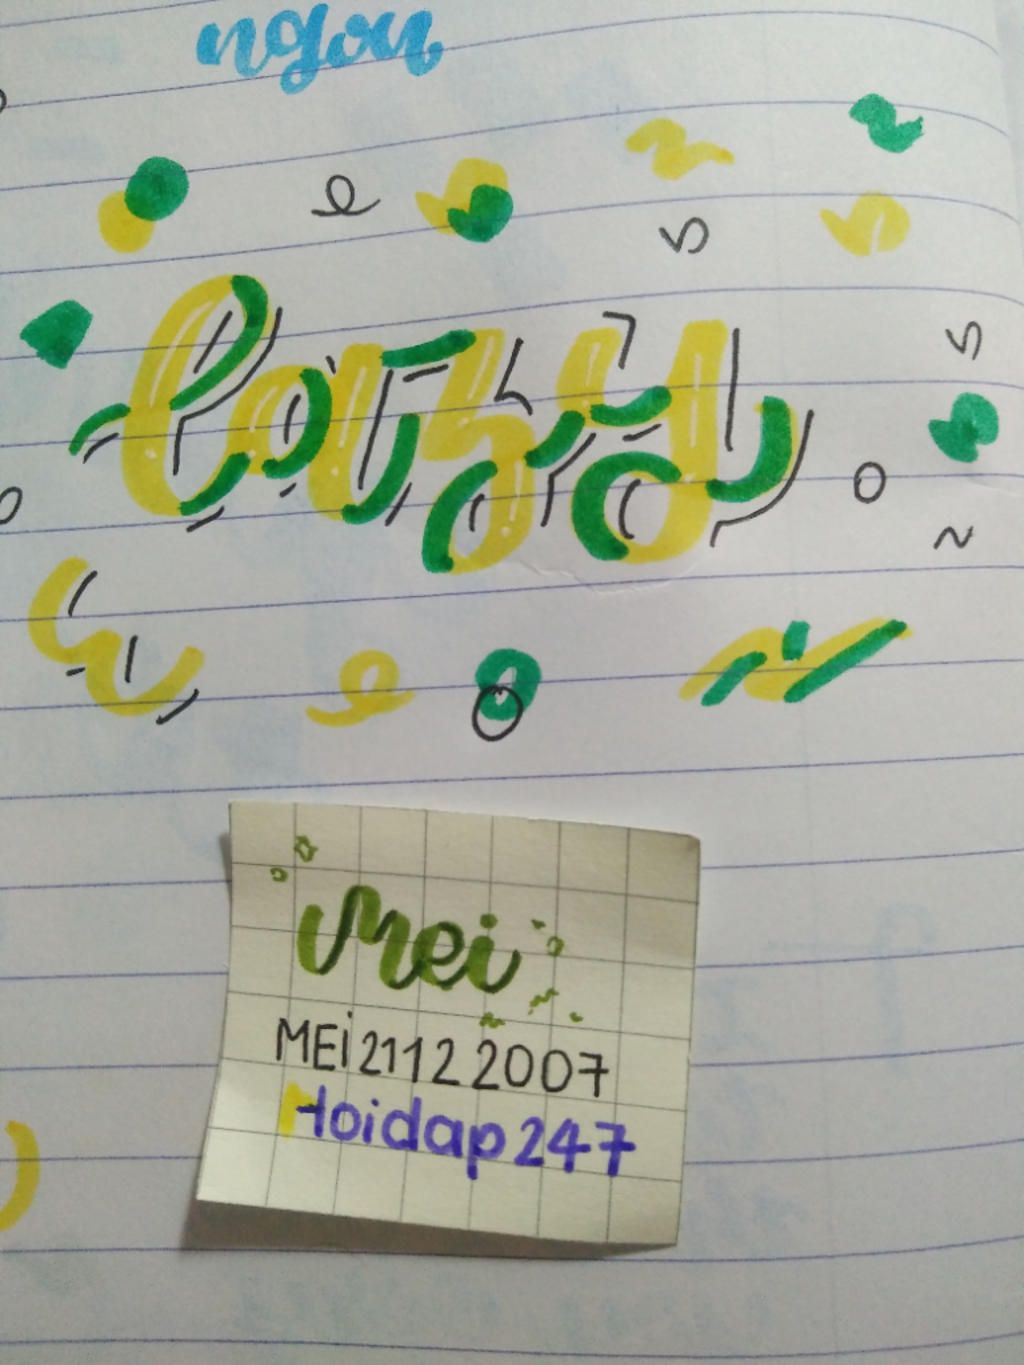 ngon
lazy
Mei
MEi21122007
Hoidap247